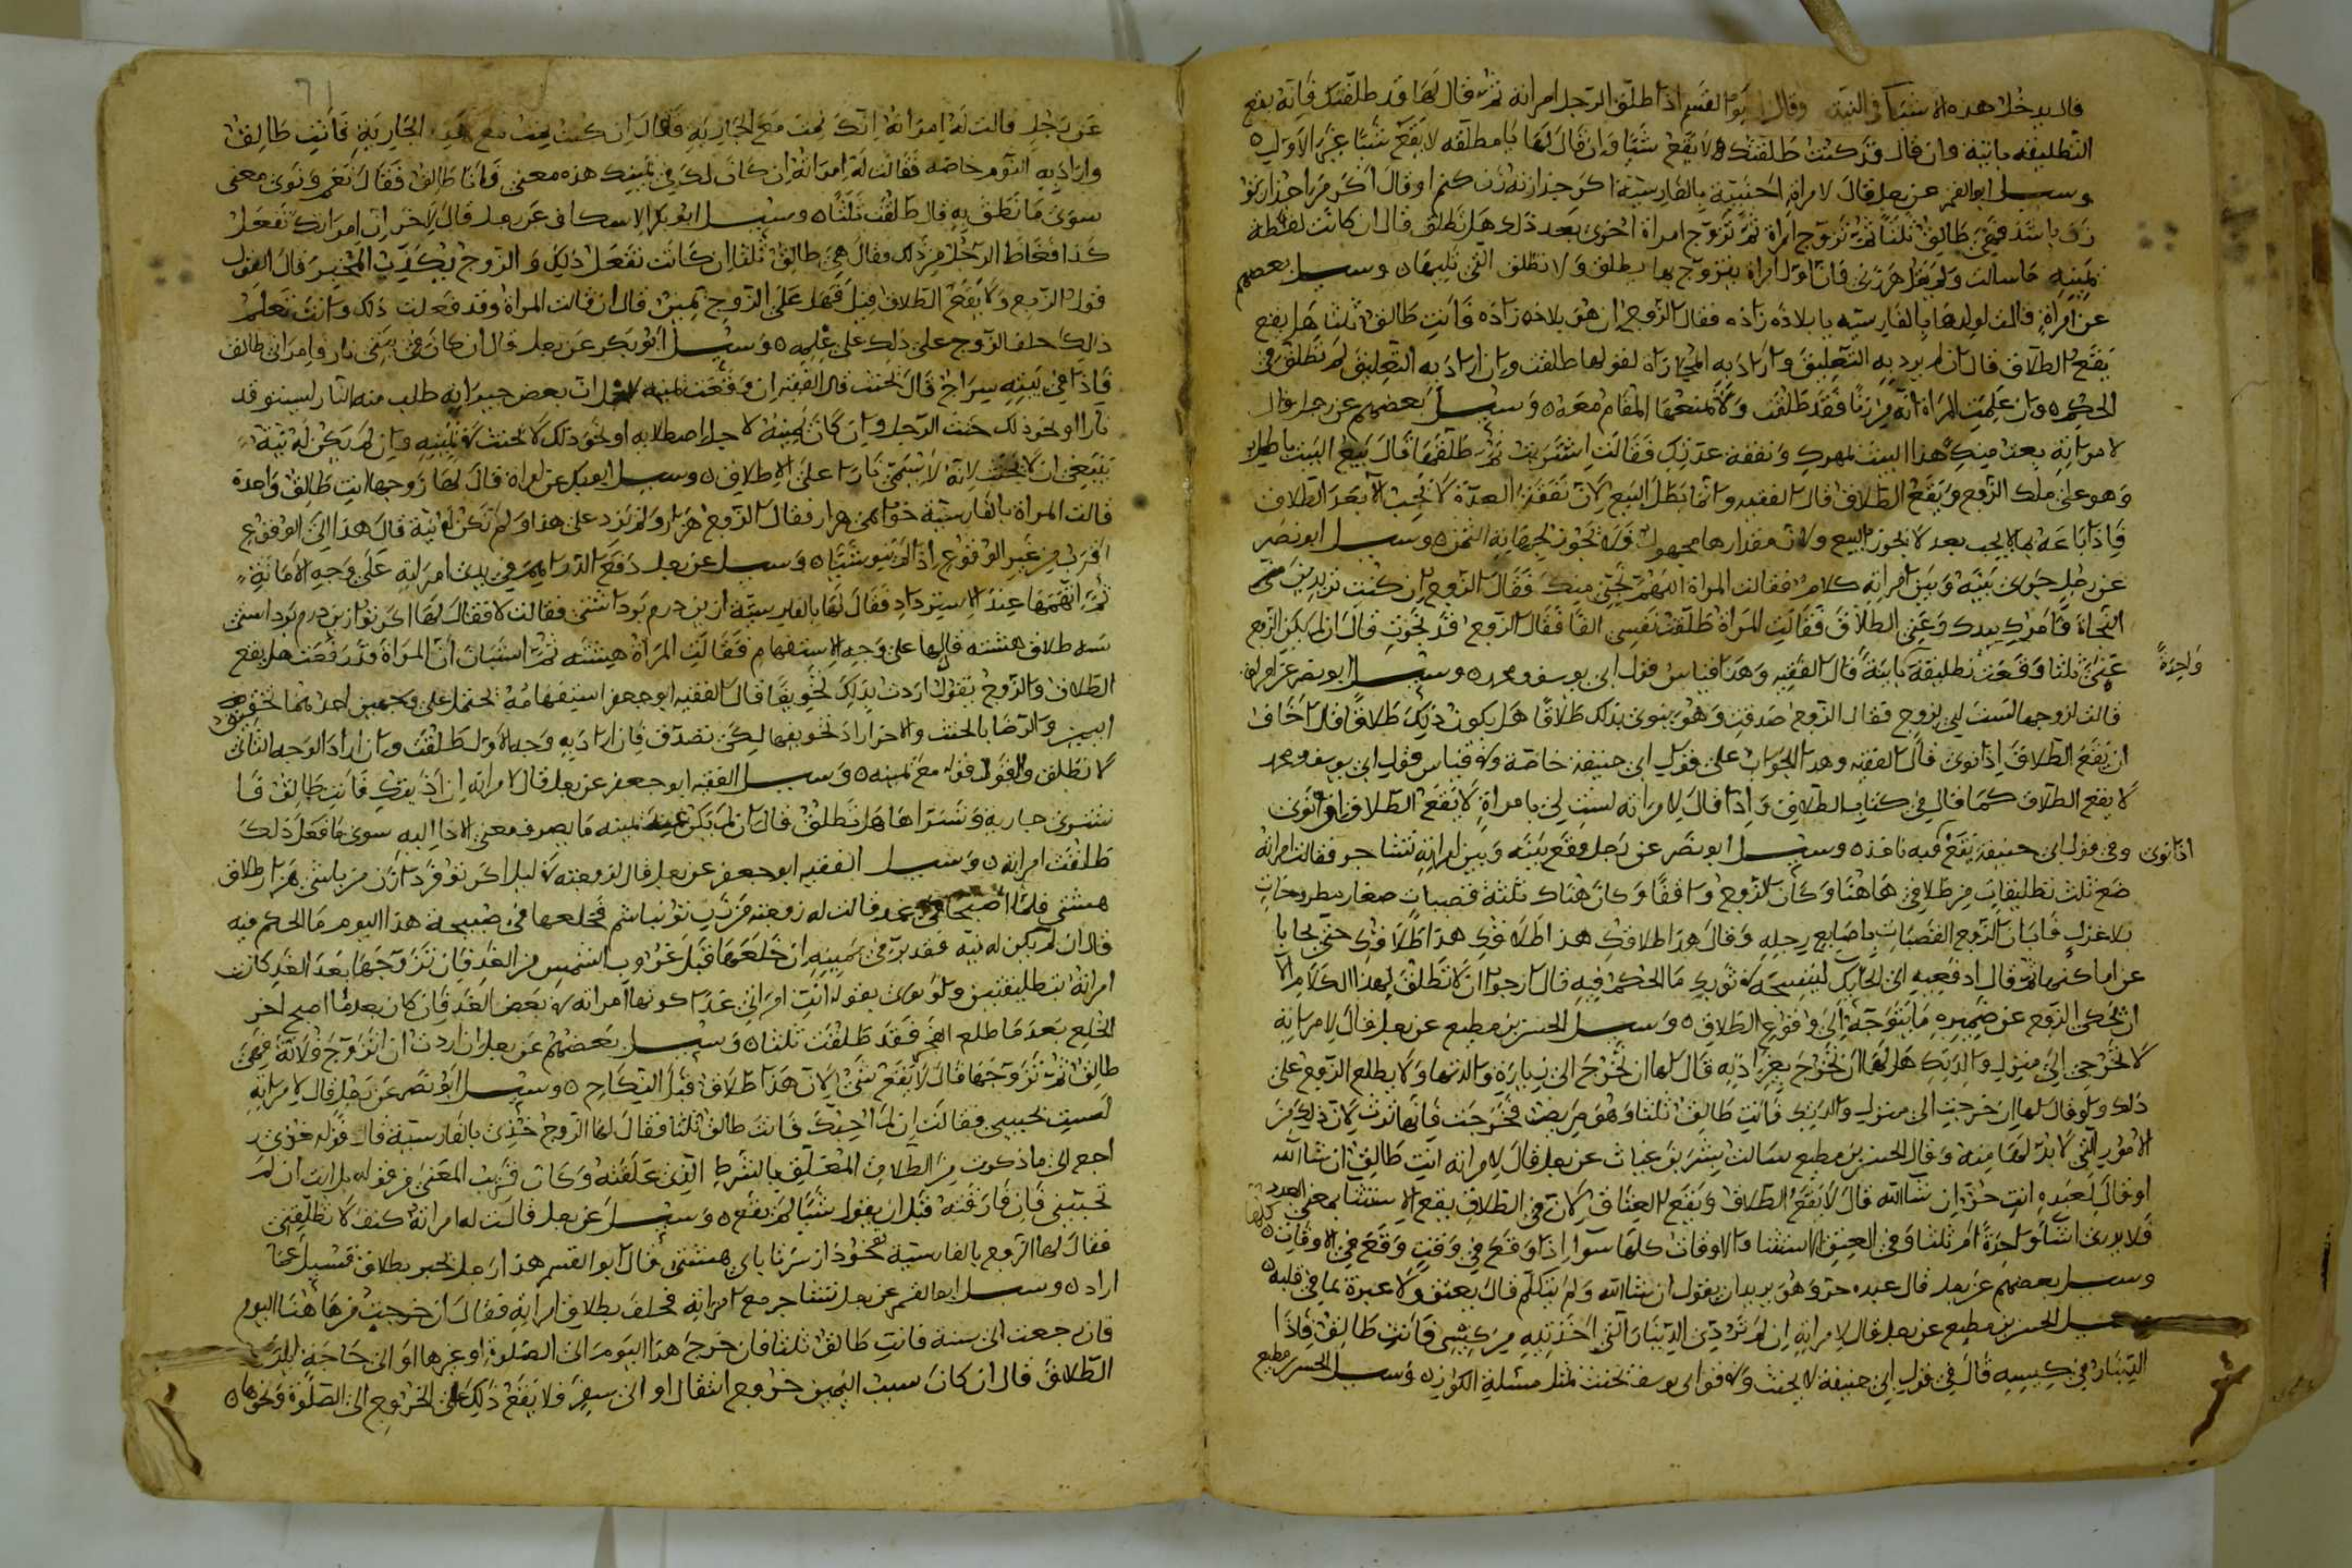 قال يدخل هذه الاشياء في النية وقال ابو القسم اذا طلق الرجل امراته ثم قال لها قد طلقتك فانه يقع
التطليقة بانية وان قال قد كنت طلقتك لا يقع شيئا وان قال لها يا مطلقه لا يقع شيئا غير الاول
وسيل ابو القسم عن رجل قال لامراة اجنبية بالفارسية اكر جز از تو زن كنم او قال اكر مرا جز از تو
زن باشد فهي طالق ثلثا ثم تزوج امراة ثم تزوج امراة اخرى بعد ذلك هل تطلق قال ان كانت لفظة
يمينه ما سالت ولم يقل هر زني فان اول امراة يتزوج بها يطلق ولا تطلق التي تليها وسيل بعضهم
عن امراة قالت لولدها بالفارسيه يا بلاذه زاذه فقال الزوج ان هو بلاذه زاذه فانت طالق ثلثا هل يقع
يقع الطلاق قال ان لم يرد به التعليق واراد به المجازاة لقولها طلقت وان اراد به التعليق لم تطلق في
الحكم وان علمت المراة انه من زنا فقد طلقت ولا يمنعها المقام معه وسيل بعضهم عن رجل قال
لامراته بعت منك هذا البيت بمهرك ونفقة عدتك فقالت اشتريت ثم طلقها قال بيع البيت باطل
وهو على ملك الزوج ويقع الطلاق قال الفقيه وانما بطل البيع لان نفقة العدة لا تجب الا بعد الطلاق
فاذا باعه بما لا يجب بعد لا يجوز البيع ولان مقدارها مجهول ولا تجوز لجهالة الثمن وسيل ابو نصر
عن رجل جرى بينه وبين امراته كلام فقالت المراة اللهم نجني منك فقال الزوج ان كنت تريدين
النجاة فامرك بيدك وعنى الطلاق فقالت المراة طلقت نفسي الفا فقال الزوج قد نجوت قال ان لم يكن الزوج
واحدة
عنى ثلثا وقعت تطليقة بانية قال الفقيه وهذا قياس قول ابي يوسف ومحمد وسيل ابو نصر عن امراة
قالت لزوجها لست لي بزوج فقال الزوج صدقت وهو ينوي بذلك طلاقا هل يكون ذلك طلاقا قال اخاف
ان يقع الطلاق اذا نوى قال الفقيه وهذا الجواب على قول ابي حنيفة خاصة وفي قياس قول ابي يوسف ومحمد
لا يقع الطلاق كما قال في كتاب الطلاق واذا قال لامراته لست لي بامراة لا يقع الطلاق وان نوى
اذا نوى
وفي قول ابي حنيفة يقع وسيل ابو نصر عن رجل وقع بينه وبين امراته تشاجر فقالت امراته
ضع ثلث تطليقات من طلاقي هاهنا وكان الزوج واقفا وكان هناك ثلثة قصبات صغار مطروحات
فابان الزوج القصبات باصابع رجله وقال هذا طلاقك هذا طلاقك هذا طلاقك حتى
عن اماكنها ثم قال ادفعيه الى الحايك لينسجه في ثوبك ما الحكم فيه قال ارجوا ان لا تطلق بهذا الكلام الا
ان يحكي الزوج عن ضميره ما يتوجه الى وقوع الطلاق وسيل الحسن بن مطيع عن رجل قال لامراته
لا تخرجي الى منزل والديك هل لها ان تخرج بغير اذنه قال لها ان تخرج الى زيارة والديها ولا يطلع الزوج على
ذلك ولو قال لها ان خرجت الى منزل والديك فانت طالق ثلثا وهو مريض فخرجت فانها ترث لان ذلك من
الامور التي لا بد لها منه وقال الحسن بن مطيع سالت بشر بن غياث عن رجل قال لامراته انت طالق ان شا الله
او قال لعبده انت حر ان شا الله قال لا يقع الطلاق ويقع العتاق لان في الطلاق يقع الاستثنا بمعنى العدد
فلا يدرى اشا واحدة ام ثلثا وفي العتق الاستثنا والاوقات كلها سوا اذا وقع في وقت وقع في الاوقات
وسيل بعضهم عن رجل قال عبده حر وهو يريد ان يقول ان شا الله ولم يتكلم قال يعتق ولا عبرة بما في قلبه
وسيل الحسن بن مطيع عن رجل قال لامراته ان لم تردي الدينار التي اخذتيه من كيسي فانت طالق فاذا
الدينار في كيسه قال في قول ابي حنيفة لا يحنث وفي قول ابي يوسف يحنث لمثل مسئلة الكوز وسيل الحسن بن مطيع
عن رجل قالت له امراته انك نمت مع الجارية فقال ان كنت نمت مع هذه الجارية فانت طالق
واراد به النوم خاصة فقالت له امراته ان كان لك في يمينك هذه معنى فانا طالق فقال نعم ونوى معنى
سوى ما نطق به قال طلقت ثلثا وسيل ابو بكر الاسكاف عن رجل قال لاخر ان امراتك تفعل
كذا فغاظ الرجل من ذلك وقال هي طالق ثلثا ان كانت تفعل ذلك والزوج يكذب المخبر قال القول
قول الزوج ولا يقع الطلاق قيل فهل على الزوج يمين قال ان قالت المراة وقد فعلت ذلك وانت تعلم
ذلك حلف الزوج على ذلك على علمه وسيل ابو بكر عن رجل قال ان كان في بيتي نار فامراتي طالق
فاذا في بيته سراج قال يحنث قال الفقيه ان وقعت يمينه لاجل ان بعض جيرانه طلب منه النار ليستوقد
نارا او نحو ذلك حنث الرجل وان كانت يمينه لاجل اصطلا به او نحو ذلك لا يحنث في يمينه وان لم يكن له نية
ينبغي ان لا يحنث لانه لا يسمى نارا على الاطلاق وسيل ابو بكر عن امراة قال لها زوجها انت طالق واحدة
قالت المراة بالفارسية خواهي هزار فقال الزوج هزار ولم يزد على هذا ولم تكن له نية قال هذا الى الوقوع
اقرب من غير الوقوع اذا لم ينو شيئا وسيل عن رجل دفع الدراهم في بيت امراته على وجه الامانة
ثم اتهمها عند الاسترداد فقال لها بالفارسية از ين درم بود اشتي فقالت لا فقال لها اكر تو از ين درم بود اشتي
سه طلاق هشته قالها على وجه الاستفهام فقالت المراة هشته ثم استبان ان المراة قد رفعت هل يقع
الطلاق والزوج يقول اردت بذلك تخويفا قال الفقيه ابو جعفر استفهامه يحتمل على وجهين احدهما تحقيق
اليمين والرضا بالحنث والاخر اراد تخويفها لكي تصدق فان اراد به وجه الاول طلقت وان اراد الوجه الثاني
لا تطلق والقول قوله مع يمينه وسيل الفقيه ابو جعفر عن رجل قال لامراته ان اذيتك فانت طالق فا
شترى جارية وتسراها هل تطلق قال ان لم يكن يمينه ما يصرف معنى الاذا اليه سوى ما فعل ذلك
طلقت امراته وسيل الفقيه ابو جعفر عن رجل قال لزوجته في ليل اكر تو فردا زن من باشي هزار طلاق
هشتي فلما اصبحا قالت له زوجته من زن تو نباشم فخلعها في صبيحة هذا اليوم ما الحكم فيه
قال ان لم يكن له نية فقد بر في يمينه ان خلعها قبل غروب الشمس من الغد فان تزوجها بعد الغد كانت
امراته بتطليقتين ولو نوى بقوله انت امراتي غدا كونها امراته في بعض الغد فان كان بعد ما اصبح اخر
الخلع بعد ما طلع الفجر فقد طلقت ثلثا وسيل بعضهم عن رجل ان اردت ان اتزوج فلانة فهي
طالق ثم تزوجها قال لا يقع شي لان هذا طلاق قبل النكاح وسيل ابو نصر عن رجل قال لامراته
لست بحبيبي فقالت ان لم احبك فانت طالق ثلثا فقال لها الزوج خذي بالفارسية قال قوله
ارجع الى ما ذكرت من الطلاق المعلق بالشرط الذي علقته وكان قريب المعنى من قوله بل انت ان لم
تحبيني فان فارقته قبل ان يقول شيئا لم يقع وسيل عن رجل قالت له امراته كيف لا تطلقني
فقال لها الزوج بالفارسية تو خوذ از سر تا پاي هشتي قال ابو القسم هذا رجل يخبر بطلاق فيسيل عما
اراد وسيل ابو القسم عن رجل تشاجر مع امراته فحلف بطلاق امراته فقال ان خرجت من هاهنا اليوم
فان رجعت الى سنة فانت طالق ثلثا فان خرج هذا اليوم الى الصلوة او غيرها او الى حاجة
الطلاق قال ان كان سبب اليمين خروج انتقال او الى سفر فلا يقع ذلك على الخروج الى الصلوة ونحوها